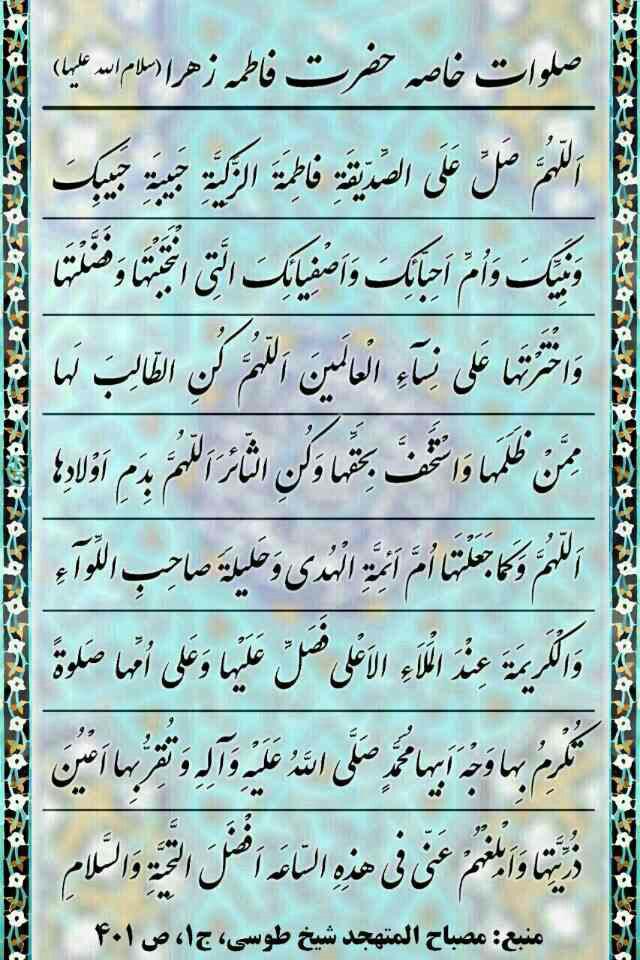 صلوات خاصه حضرت فاطمه زهرا (سلام الله علیها)
اَللّهُمَّ صَلِّ عَلَی الصِّدّیقَةِ فاطِمَةَ الزَّکِیَّةِ حَبیبَةِ حَبیبِکَ
وَنَبِیِّکَ وَاُمِّ اَحِبّائِکَ وَاَصْفِیائِکَ الَّتِی انْتَجَبْتَها وَفَضَّلْتَها
وَاخْتَرْتَها عَلی نِسآءِ الْعالَمینَ اَللّهُمَّ کُنِ الطّالِبَ لَها
مِمَّنْ ظَلَمَها وَاسْتَخَفَّ بِحَقِّها وَکُنِ الثّائِرَ اَللّهُمَّ بِدَمِ اَوْلادِها
اَللّهُمَّ وَکَما جَعَلْتَها اُمَّ اَئِمَّةِ الْهُدی وَحَلیلَةَ صاحِبِ اللِّوآءِ
وَالْکَریمَةَ عِنْدَ الْمَلَاءِ الاَعْلی فَصَلِّ عَلَیْها وَعَلی اُمِّها صَلوةً
تُکْرِمُ بِها وَجْهَ اَبیها مُحَمَّدٍ صَلَّی اللَّهُ عَلَیْهِ وَآلِهِ وَتُقِرُّ بِها اَعْیُنَ
ذُرِّیَّتِها وَاَبْلِغْهُمْ عَنّی فی هذِهِ السّاعَه اَفْضَلَ التَّحِیَّةِ وَالسَّلامِ
منبع: مصباح المتهجد شیخ طوسی، ج۱، ص ۴۰۱